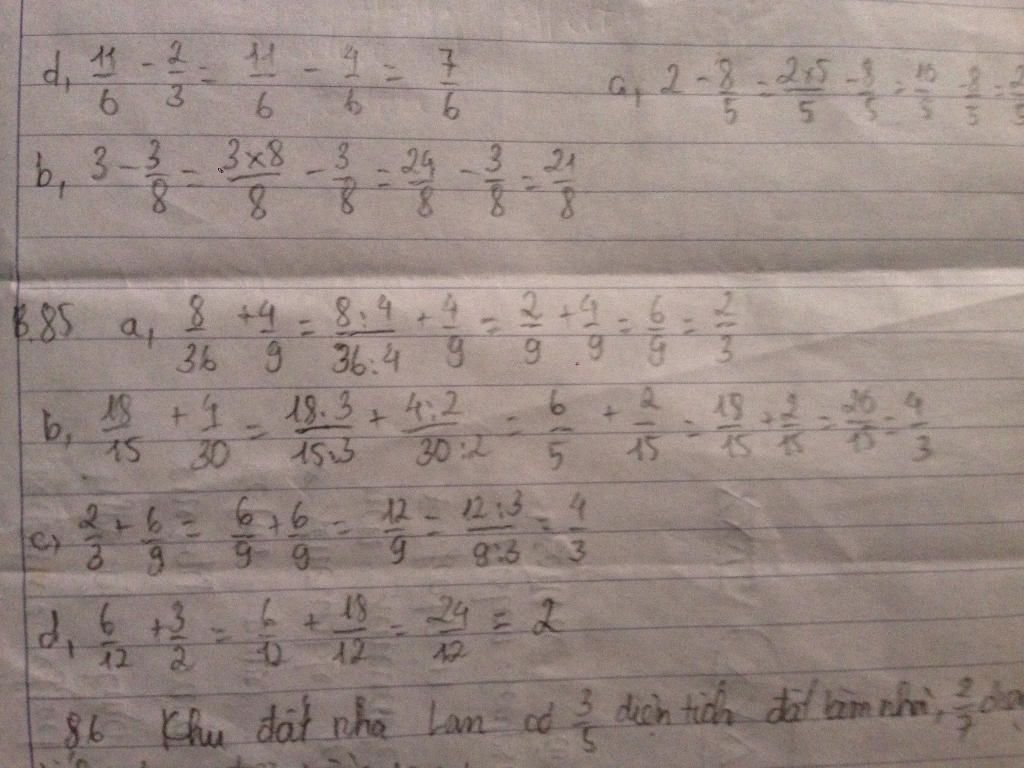 d, 11/6 - 2/3 = 11/6 - 4/6 = 7/6 a, 2 - 8/5 = 2×5/5 - 8/5 = 10/5 - 8/5 = 2/5
b, 3 - 3/8 = 3×8/8 - 3/8 = 24/8 - 3/8 = 21/8
B.85 a, 8/36 + 4/9 = 8:4/36:4 + 4/9 = 2/9 + 4/9 = 6/9 = 2/3
b, 18/15 + 4/30 = 18:3/15:3 + 4:2/30:2 = 6/5 + 2/15 = 18/15 + 2/15 = 20/15 = 4/3
c, 2/3 + 6/9 = 6/9 + 6/9 = 12/9 = 12:3/9:3 = 4/3
d, 6/12 + 3/2 = 6/12 + 18/12 = 24/12 = 2
86 Khu đất nhà Lan có 3/5 diện tích đất làm nhà, 2/7